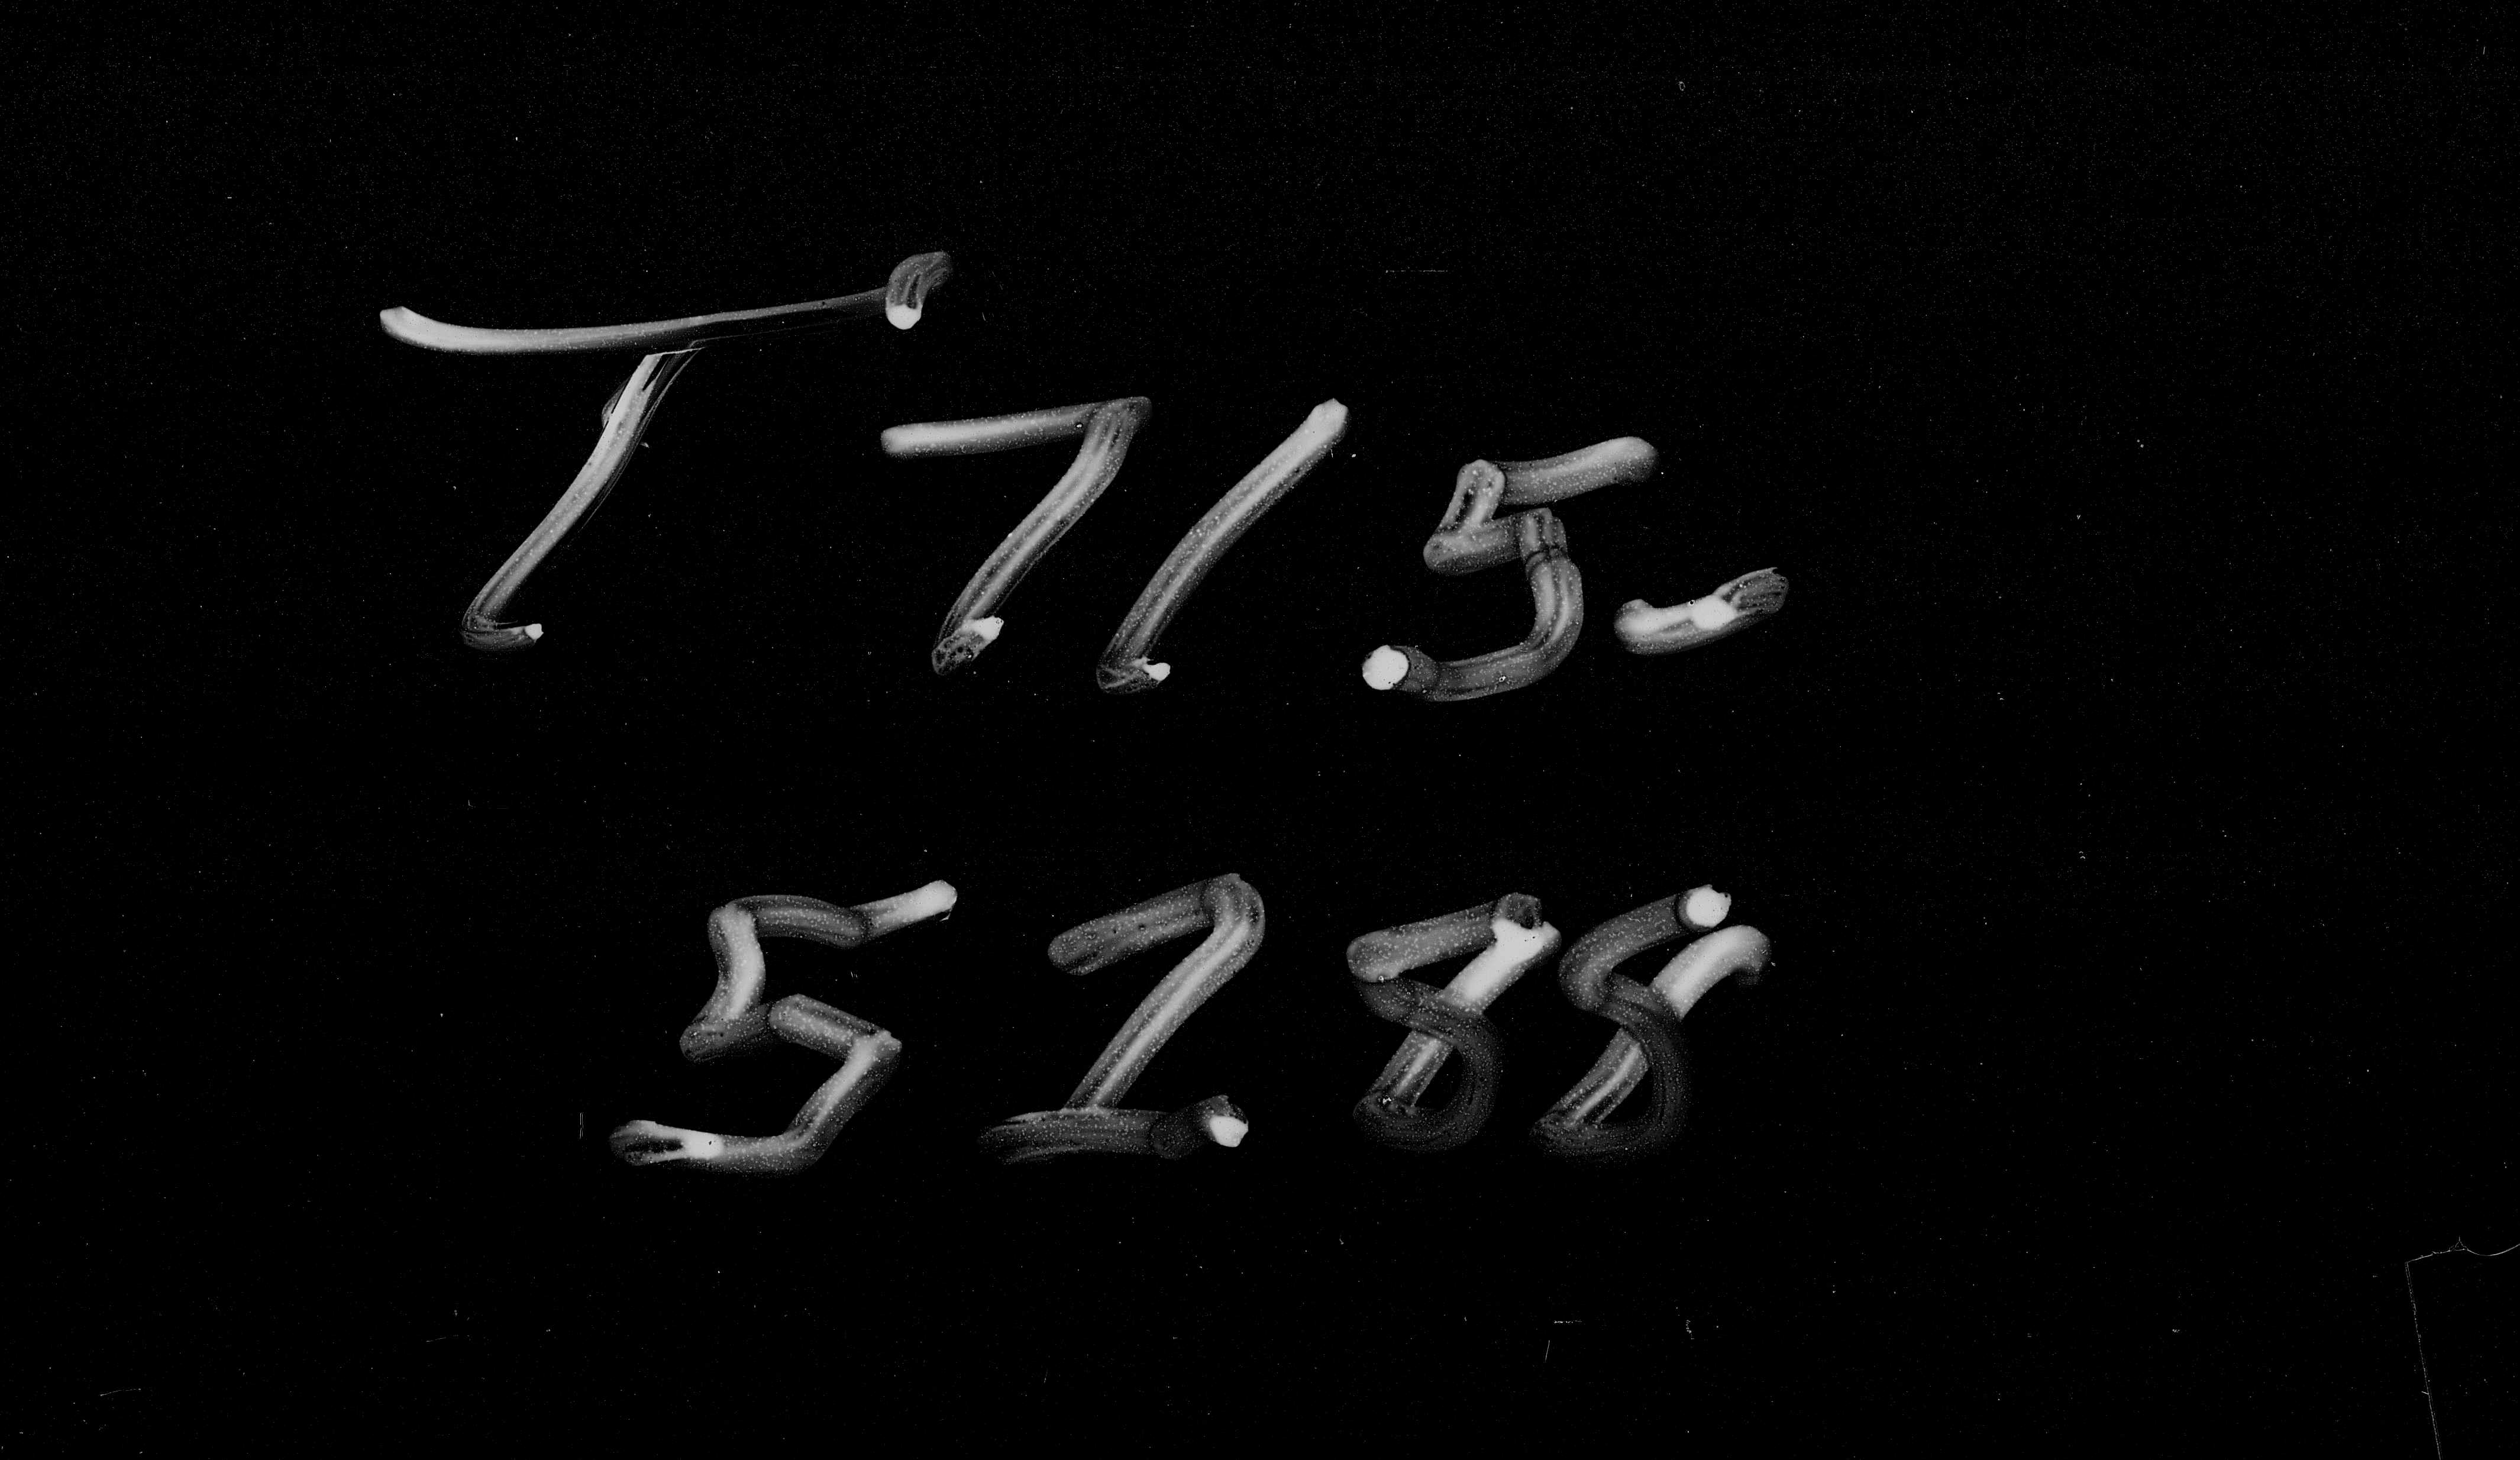 T 715-
5288